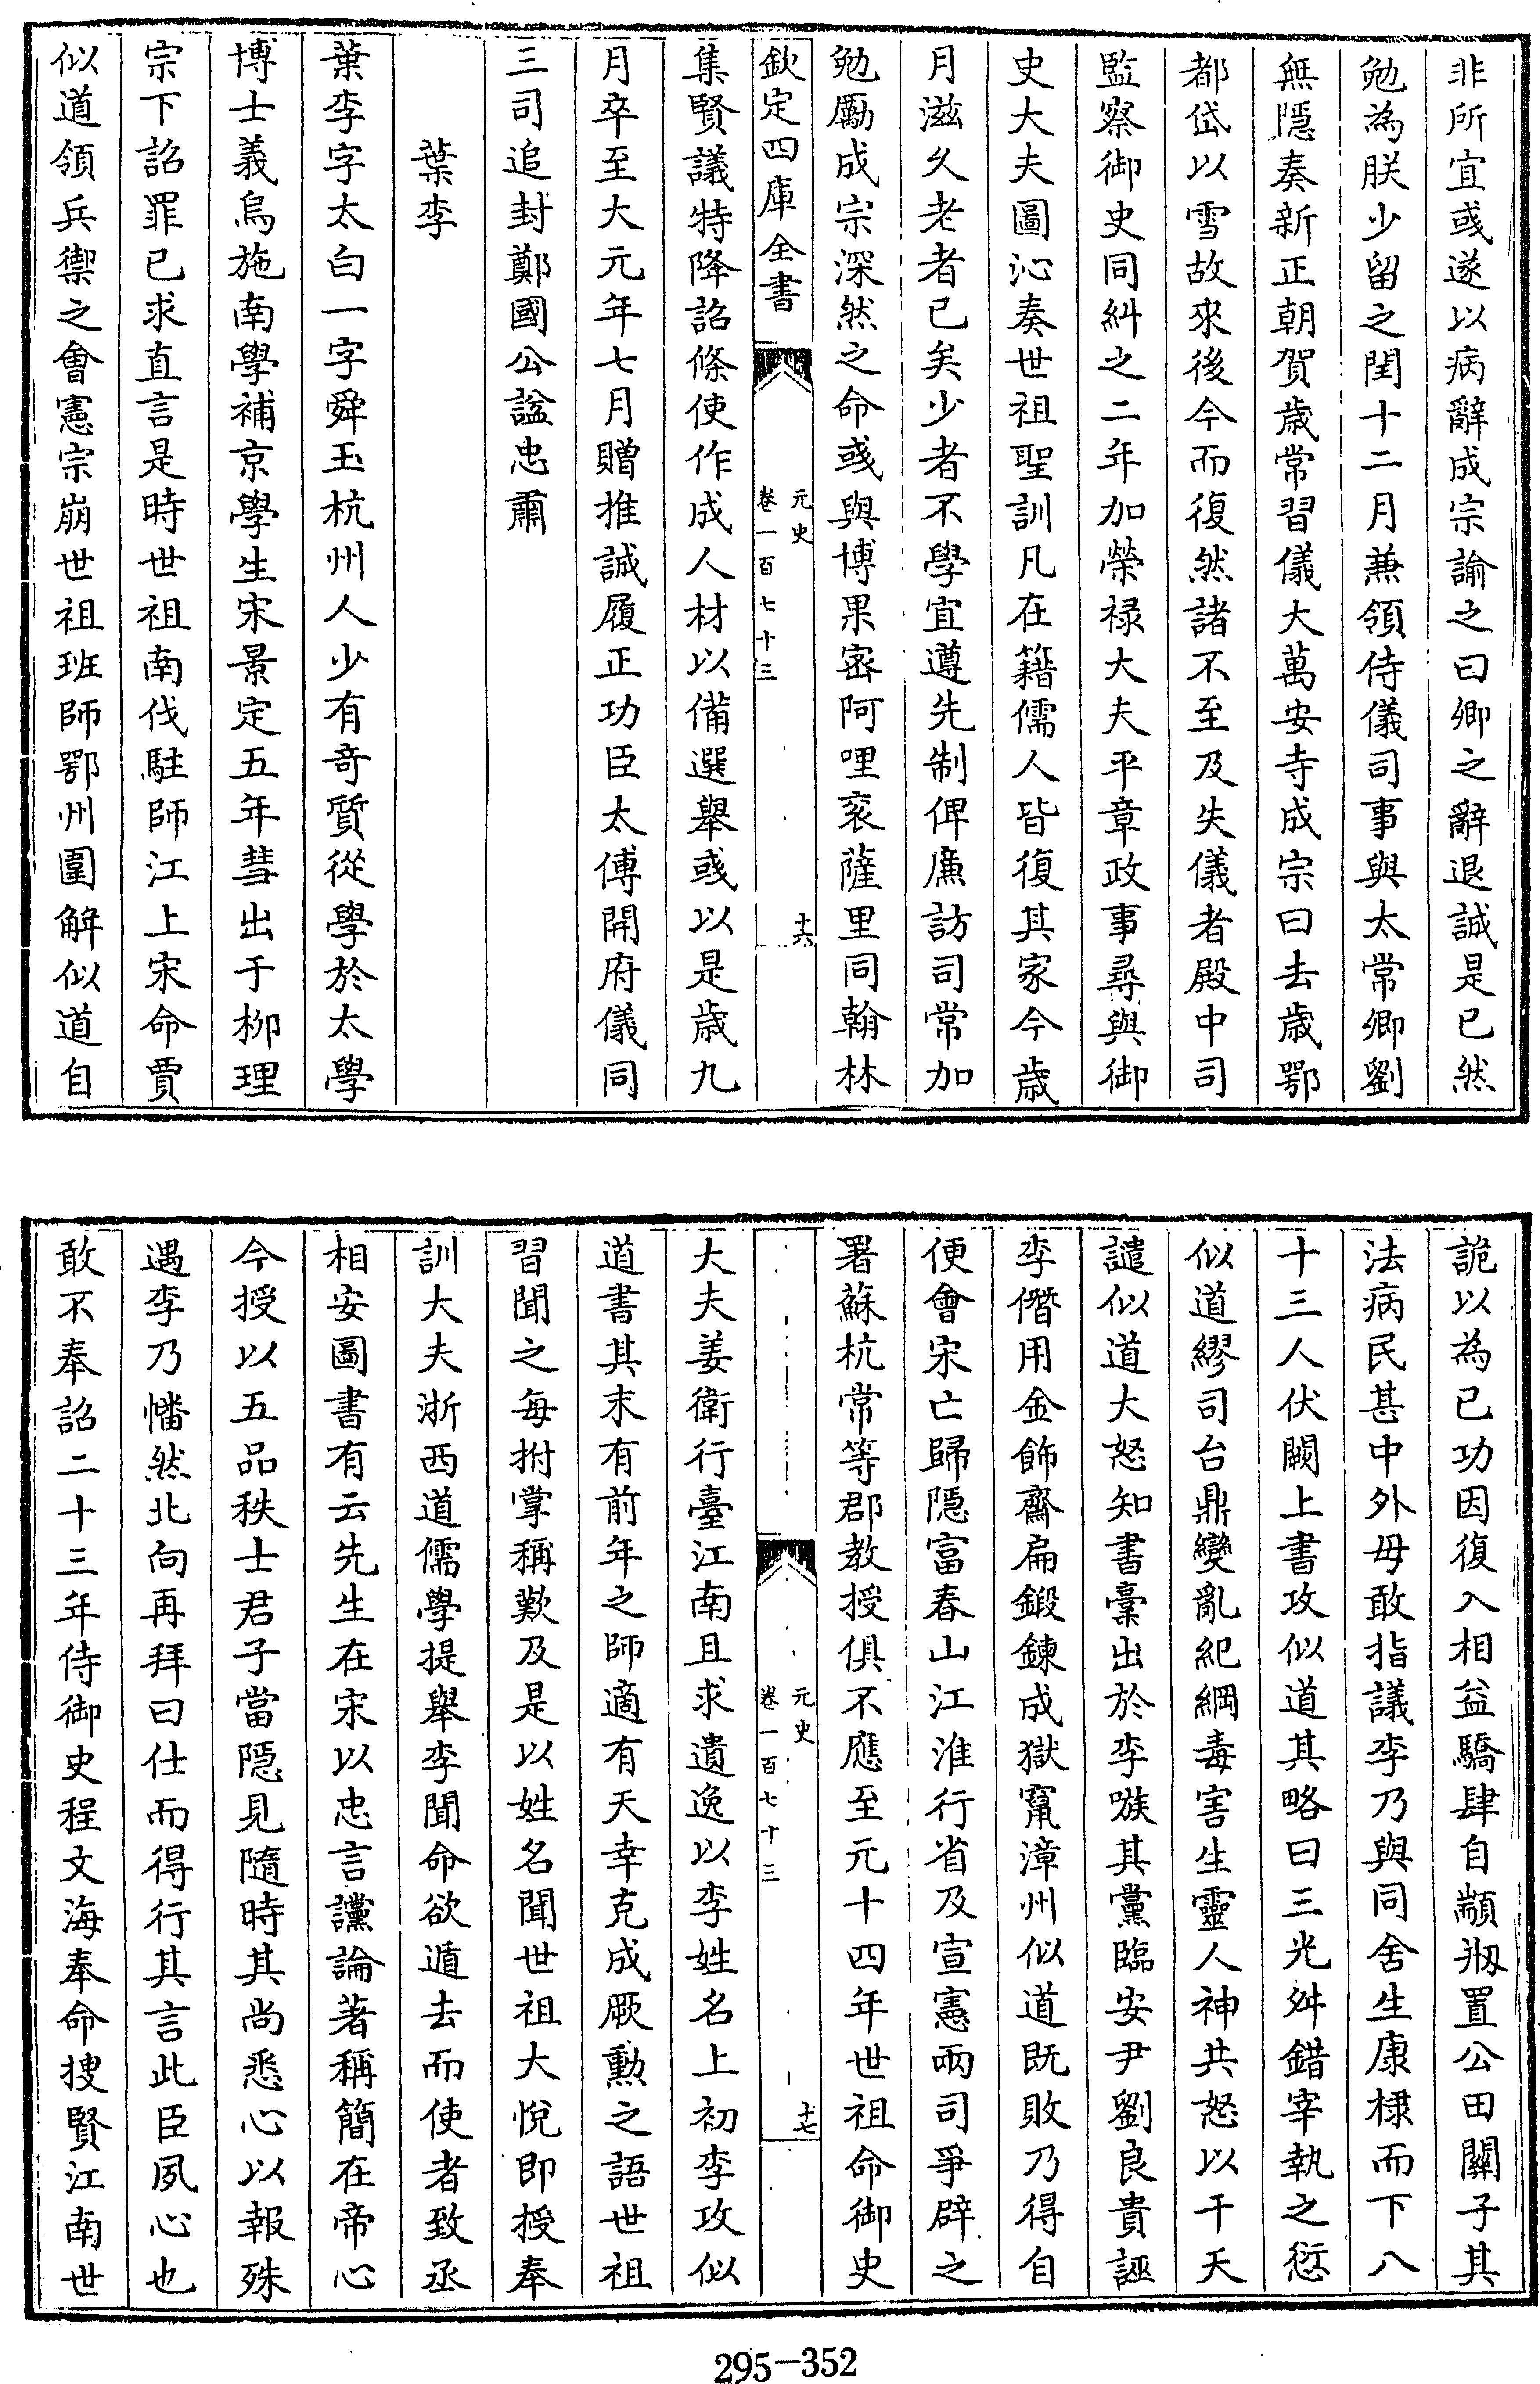 非所宜或遂以病辭成宗諭之曰卿之辭退誠是已然
勉為朕少留之閏十二月兼領侍儀司事與太常卿劉
無隱奏新正朝賀歳常習儀大萬安寺成宗曰去歳鄂
都岱以雪故來後今而復然諸不至及失儀者殿中司
監察御史同糾之二年加榮禄大夫平章政事尋與御
史大夫圖沁奏世祖聖訓凡在籍儒人皆復其家今歳
月滋久老者已矣少者不學宜遵先制俾廉訪司常加
勉勵成宗深然之命或與博果密阿哩衮薩里同翰林
欽定四庫全書
元史
卷一百七十三
十六
集賢議特降詔條使作成人材以備選舉或以是歳九
月卒至大元年七月贈推誠履正功臣太傅開府儀同
三司追封鄭國公諡忠肅
葉李
葉李字太白一字舜玉杭州人少有奇質從學於太學
博士義烏施南學補京學生宋景定五年彗出于柳理
宗下詔罪已求直言是時世祖南伐駐師江上宋命賈
似道領兵禦之會憲宗崩世祖班師鄂州圍解似道自
詭以為已功因復入相益驕肆自顓剏置公田關子其
法病民甚中外毋敢指議李乃與同舍生康棣而下八
十三人伏闕上書攻似道其略曰三光舛錯宰執之愆
似道繆司台鼎變亂紀綱毒害生靈人神共怒以干天
譴似道大怒知書稾出於李嗾其黨臨安尹劉良貴誣
李僭用金飾齋扁鍛鍊成獄竄漳州似道既敗乃得自
便會宋亡歸隱富春山江淮行省及宣憲兩司爭辟之
署蘇杭常等郡教授俱不應至元十四年世祖命御史
元史
卷一百七十三
十七
大夫姜衛行臺江南且求遺逸以李姓名上初李攻似
道書其末有前年之師適有天幸克成厥勳之語世祖
習聞之每拊掌稱歎及是以姓名聞世祖大悅即授奉
訓大夫浙西道儒學提舉李聞命欲遁去而使者致丞
相安圖書有云先生在宋以忠言讜論著稱簡在帝心
今授以五品秩士君子當隱見隨時其尚悉心以報殊
遇李乃幡然北向再拜曰仕而得行其言此臣夙心也
敢不奉詔二十三年侍御史程文海奉命搜賢江南世
295-352